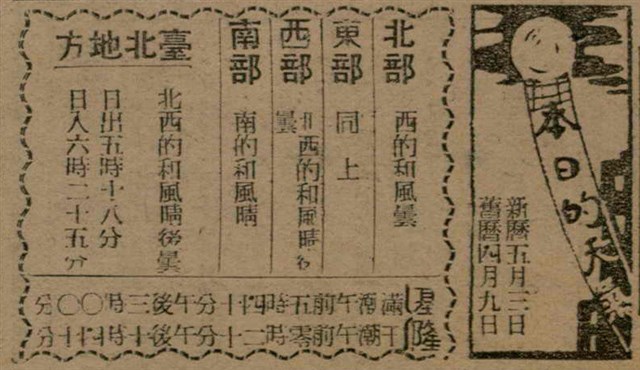 本日的天
新曆五月三日
舊曆四月九日
北部 西的和風曇
東部 同上
西部 北西的和風晴後
曇
南部 南的和風晴
臺北地方 北西的和風晴後曇
日出五時十八分
日入六時二十五分
基隆
滿潮午前五時四十分午後三時〇〇分
干潮午前零時二十分午後十時分